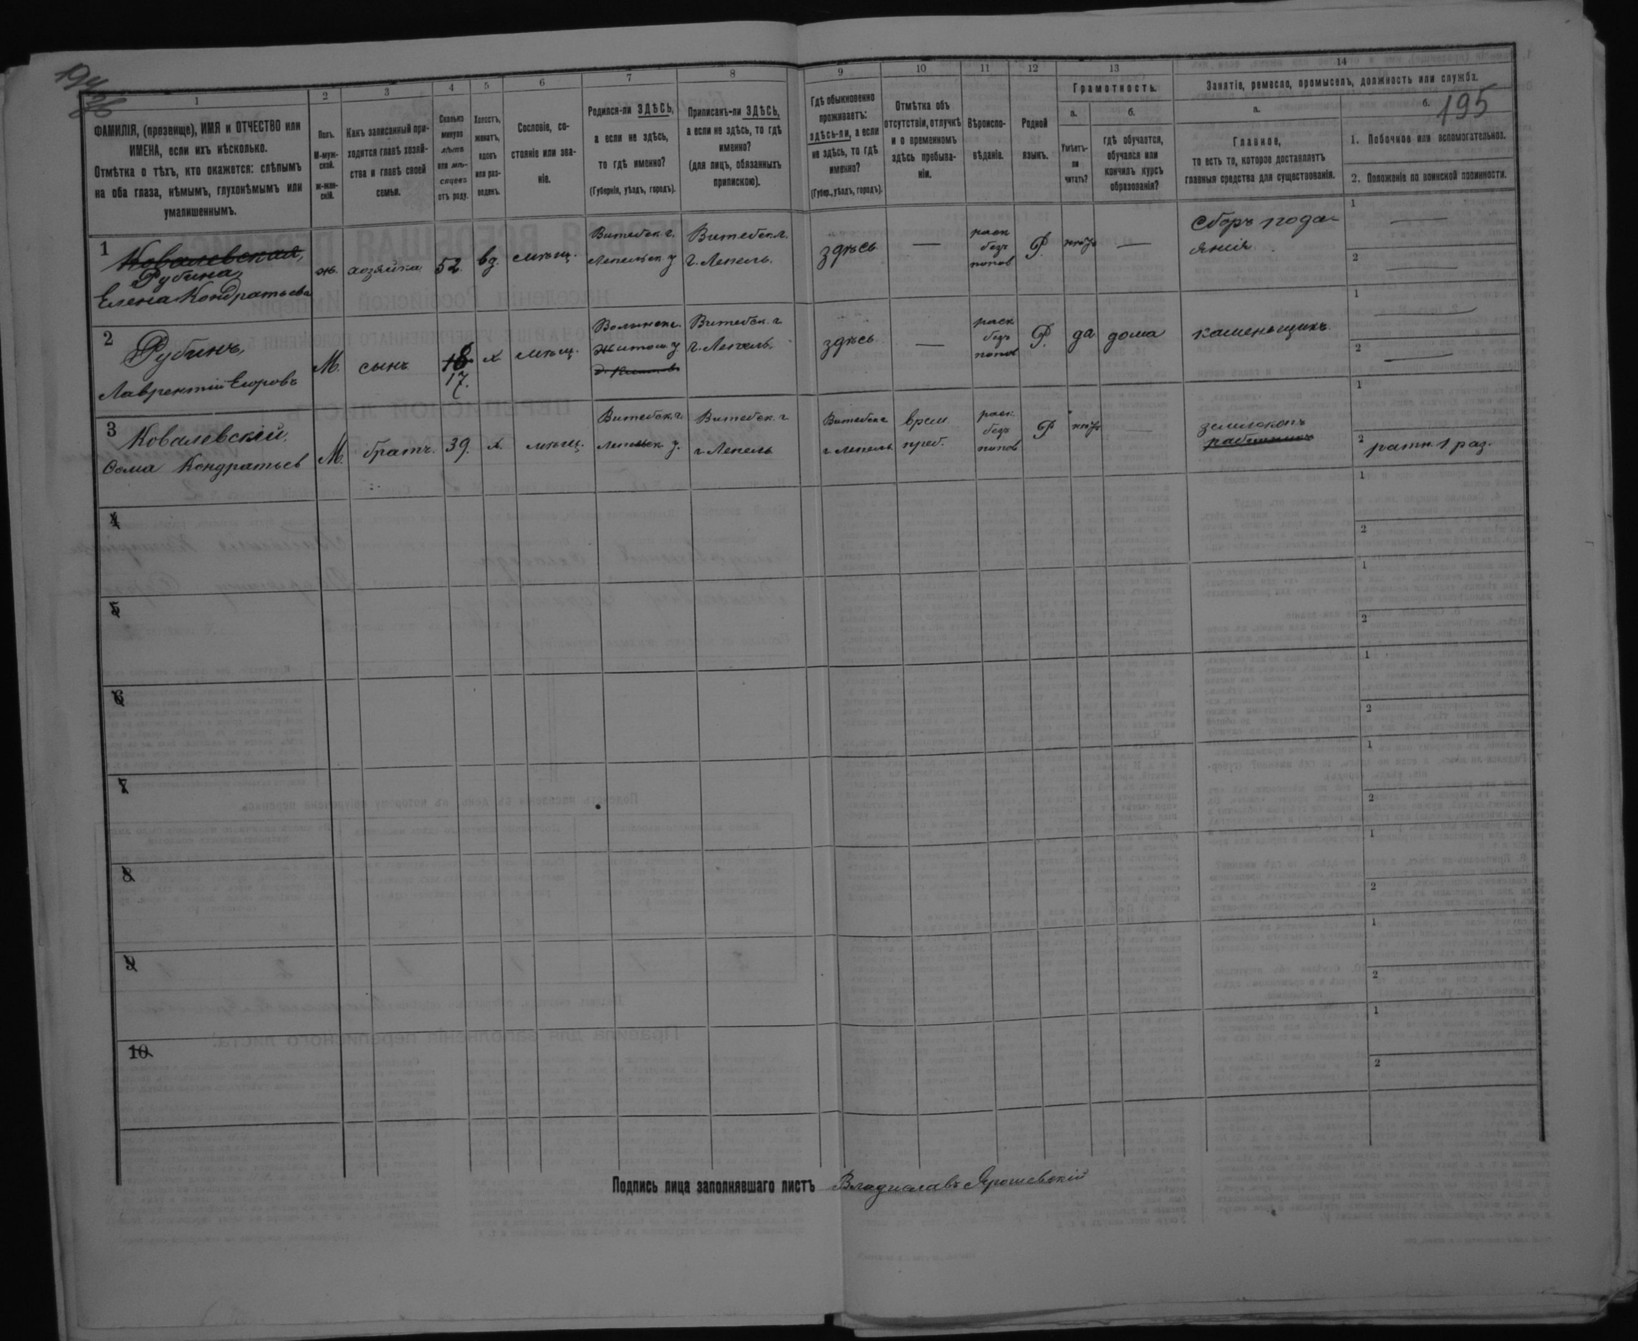 194
195
1
2
3
4
5
6
7
8
9
10
11
12
13
14
ФАМИЛІЯ, (прозвище), ИМЯ и ОТЧЕСТВО или
ИМЕНА, если ихъ нѣсколько.
Отмѣтка о тѣхъ, кто окажется: слѣпымъ
на оба глаза, нѣмымъ, глухонѣмымъ или
умалишеннымъ.
Полъ.
М-муж-
ской.
Ж-жен-
скій.
Какъ записанный при-
ходится главѣ хозяй-
ства и главѣ своей
семьи.
Сколько
минуло
лѣтъ
или мѣ-
сяцевъ
отъ роду.
Холостъ,
женатъ,
вдовъ
или раз-
веденъ.
Сословіе, со-
стояніе или зва-
ніе.
Родился-ли ЗДѢСЬ,
а если не здѣсь,
то гдѣ именно?
(Губернія, уѣздъ, городъ).
Приписанъ-ли ЗДѢСЬ,
а если не здѣсь, то гдѣ
именно?
(для лицъ, обязанныхъ
припискою).
Гдѣ обыкновенно
проживаетъ:
здѣсь-ли, а если
не здѣсь, то гдѣ
именно?
(Губер., уѣздъ, городъ).
Отмѣтка объ
отсутствіи, отлучкѣ
и о временномъ
здѣсь пребыва-
ніи.
Вѣроиспо-
вѣданіе.
Родной
языкъ.
Грамотность.
а.
Умѣетъ-
ли
читать?
б.
гдѣ обучается,
обучался или
кончилъ курсъ
образованія?
Занятіе, ремесло, промыселъ, должность или служба.
а.
Главное,
то есть то, которое доставляетъ
главныя средства для существованія.
б.
1. Побочное или вспомогательное.
2. Положеніе по воинской повинности.
1
Ковалевская,
Рубина,
Елена Кондратьева
ж.
хозяйка
52
вд.
мѣщ.
Витебск. г.
Лепельск. у
Витебск. г.
г. Лепель.
здѣсь
—
раск
безъ
попов
Р.
нѣтъ
—
Сборъ пода-
янія
1 —
2 —
2
Рубинъ,
Лаврентій Егоровъ
М.
сынъ
18
17.
х
мѣщ.
Волынск.
Житом. у
Витебск. г.
г. Лепель.
здѣсь
—
раск
безъ
попов
Р.
да
дома
каменьщикъ
1 —
2 —
3
Ковалевскій.
Ѳома Кондратьев
М.
братъ.
39.
х.
мѣщ.
Витебск. г.
Лепельск у.
Витебск. г
г. Лепель
Витебск г
г Лепель
врем
преб.
раск.
безъ
попов
Р
нѣтъ
—
землекопъ
работникъ
1
2 ратн. 1 раз.
4
1
2
5
1
2
6
1
2
7
1
2
8
1
2
9
1
2
10
1
2
Подпись лица заполнявшаго листъ Владиславъ Ярошевскій